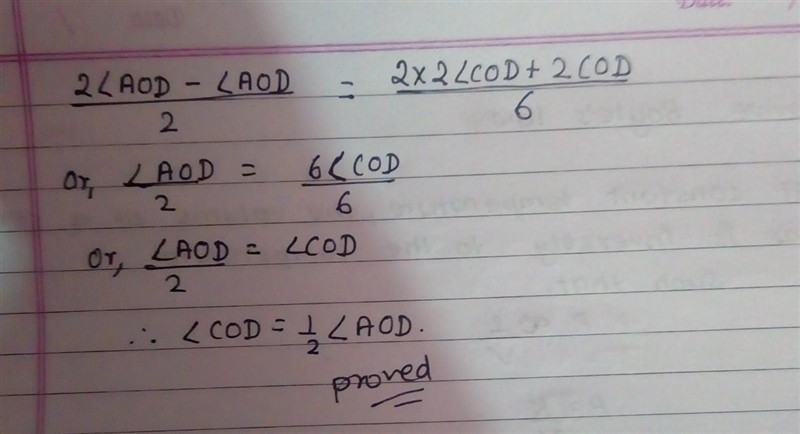 Date.
(2∠AOD - ∠AOD)/2 = (2×2∠COD + 2COD)/6
Or, ∠AOD/2 = 6∠COD/6
Or, ∠AOD/2 = ∠COD
∴ ∠COD = 1/2 ∠AOD.
proved